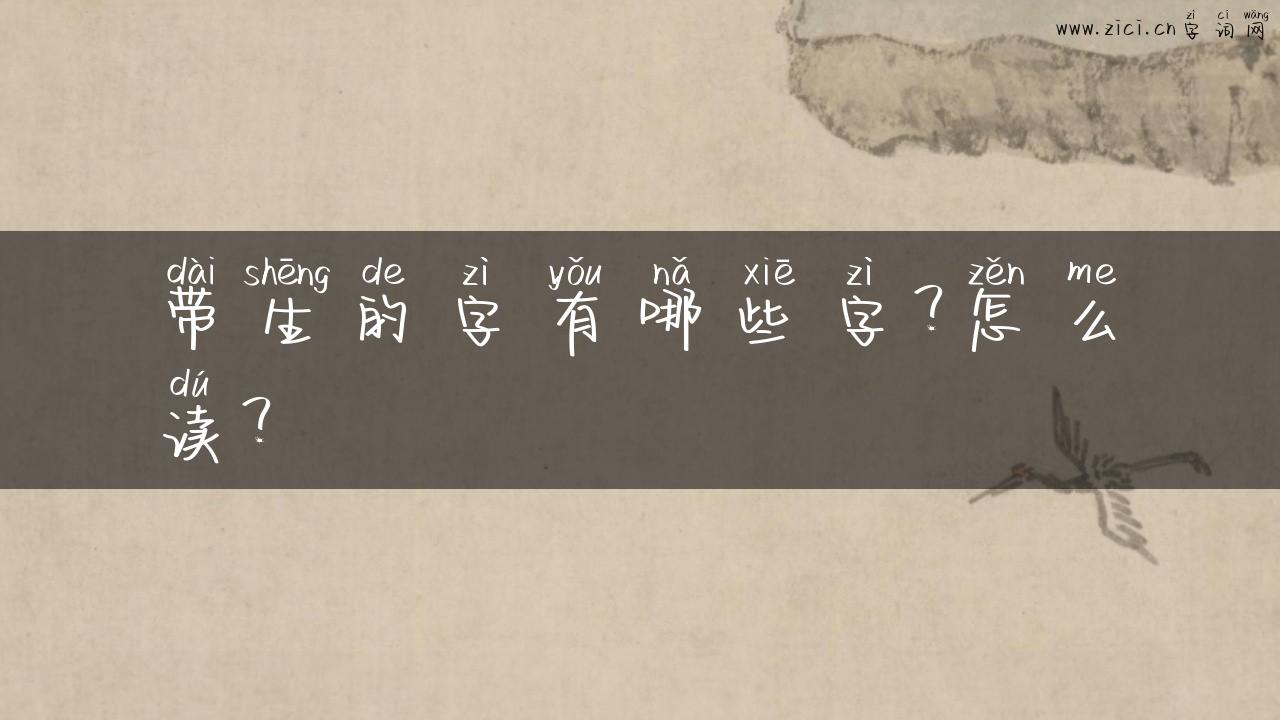 zì cí wǎng
www.zici.cn 字词网
dài shēng de zì yǒu nǎ xiē zì zěn me
带生的字有哪些字？怎么
dú
读？